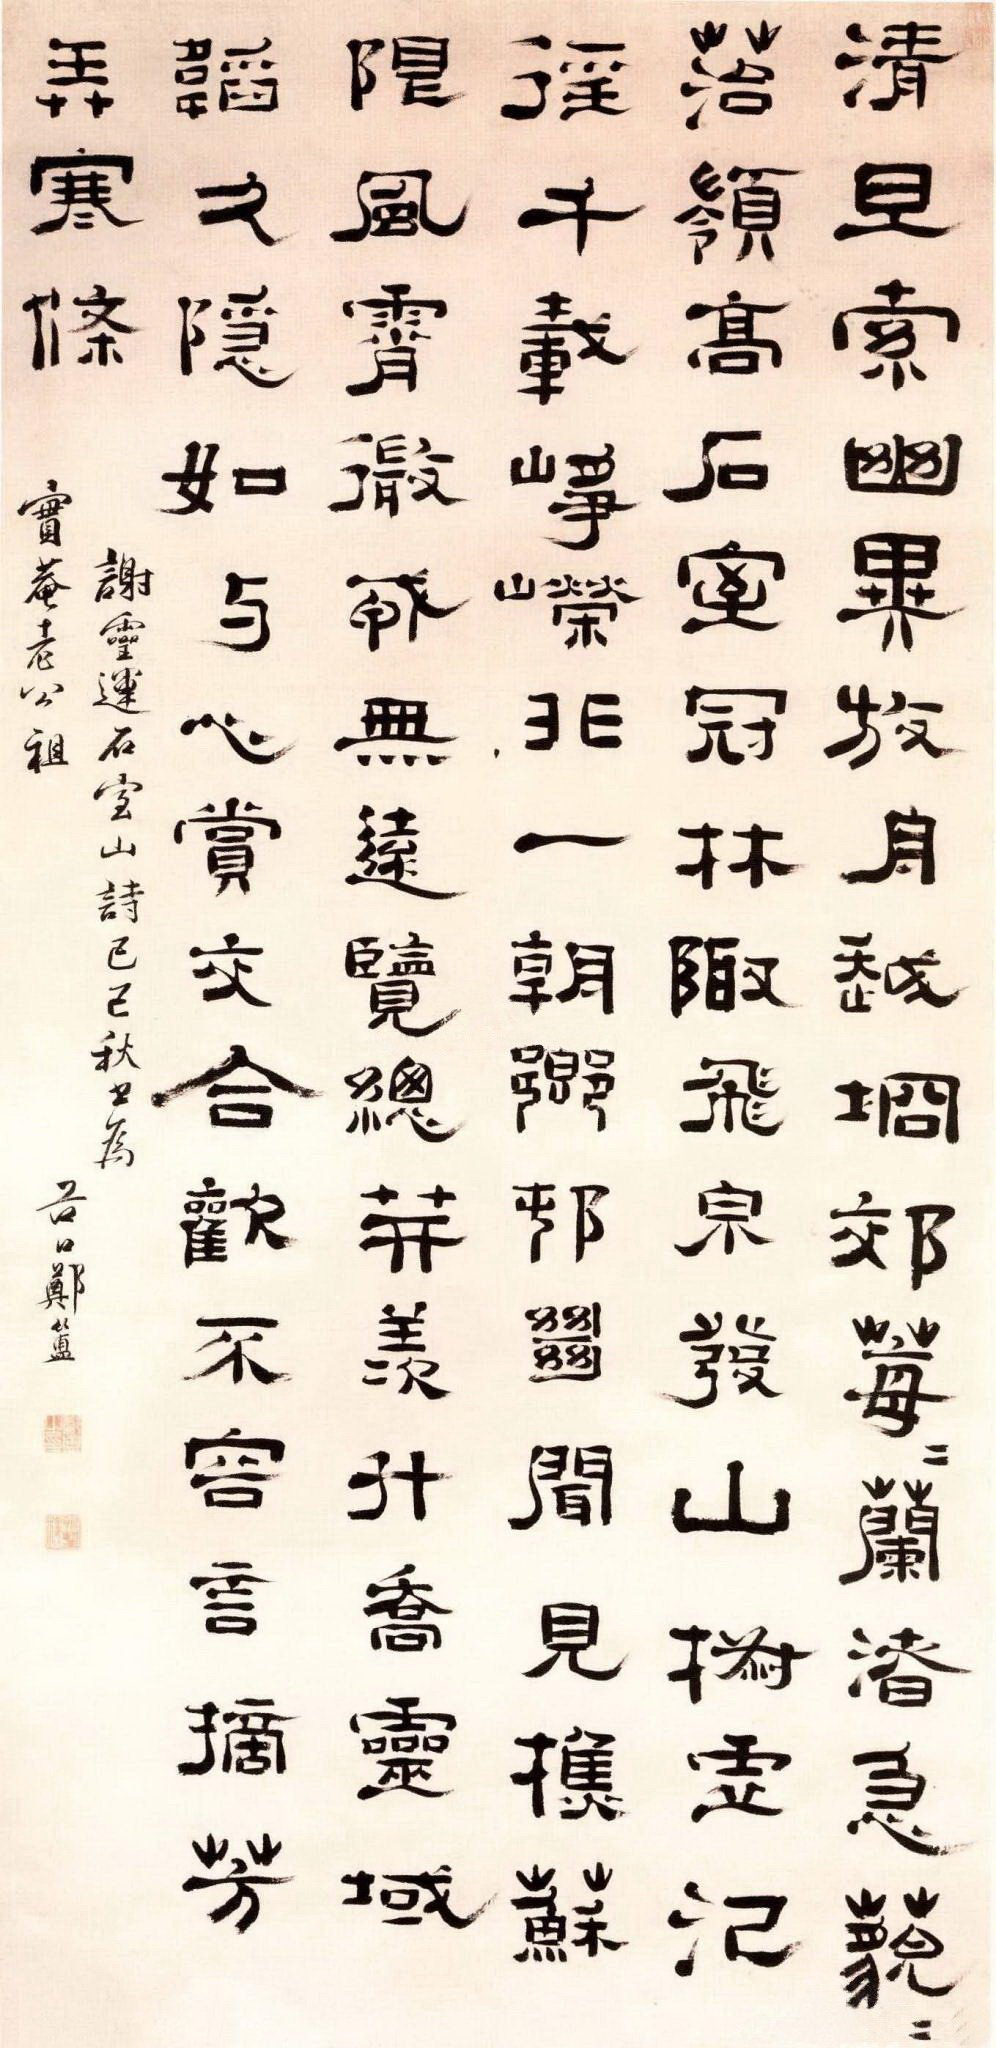 清旦索幽異放舟越坰郊莓〻蘭渚急藐〻
苔嶺高石室冠林陬飛泉發山椒虛氾
徑千載崢嶸非一朝鄉邨𢇍聞見樵蘇
限風霄微戎無遠覽總笄羨升喬靈域
韜久隱如与心賞交合歡不容言摘芳
弄寒條
謝靈運石室山詩己巳秋書為
實菴老公祖
谷口鄭簠